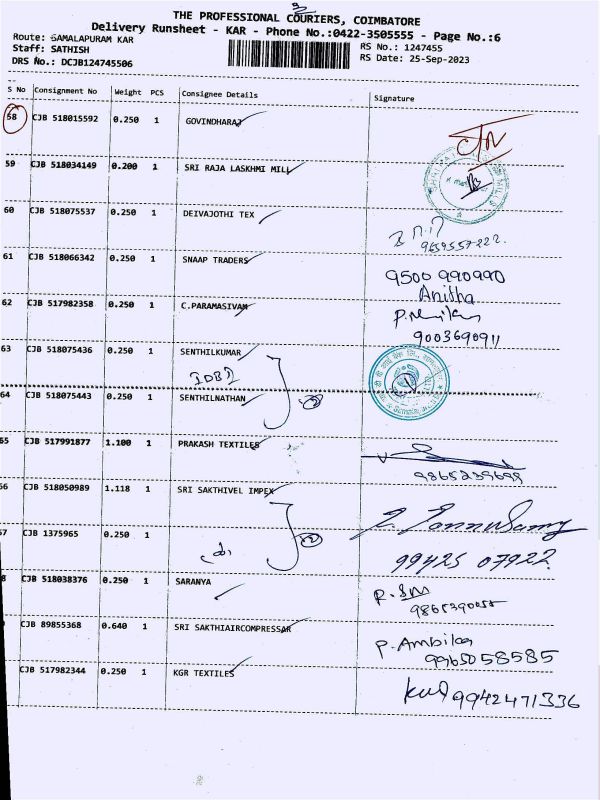 THE PROFESSIONAL COURIERS, COIMBATORE
Delivery Runsheet - KAR - Phone No.:0422-3505555 - Page No.:6
Route: SAMALAPURAM KAR
RS No.: 1247455
Staff: SATHISH
RS Date: 25-Sep-2023
DRS No.: DCJB124745506
S No Consignment No Weight PCS Consignee Details Signature
58 CJB 518015592 0.250 1 GOVINDHARAJ
59 CJB 518034149 0.200 1 SRI RAJA LASKHMI MILL
60 CJB 518075537 0.250 1 DEIVAJOTHI TEX
9659557222.
61 CJB 518066342 0.250 1 SNAAP TRADERS
9500 990990
Anitha
62 CJB 517982358 0.250 1 C.PARAMASIVAM
9003690911
63 CJB 518075436 0.250 1 SENTHILKUMAR
IDBI
64 CJB 518075443 0.250 1 SENTHILNATHAN
65 CJB 517991877 1.100 1 PRAKASH TEXTILES
9865239699
66 CJB 518050989 1.118 1 SRI SAKTHIVEL IMPEX
67 CJB 1375965 0.250 1
99425 07922
8 CJB 518038376 0.250 1 SARANYA
CJB 89855368 0.640 1 SRI SAKTHIAIRCOMPRESSAR
P. Ambika
9965058585
CJB 517982344 0.250 1 KGR TEXTILES
9942471336